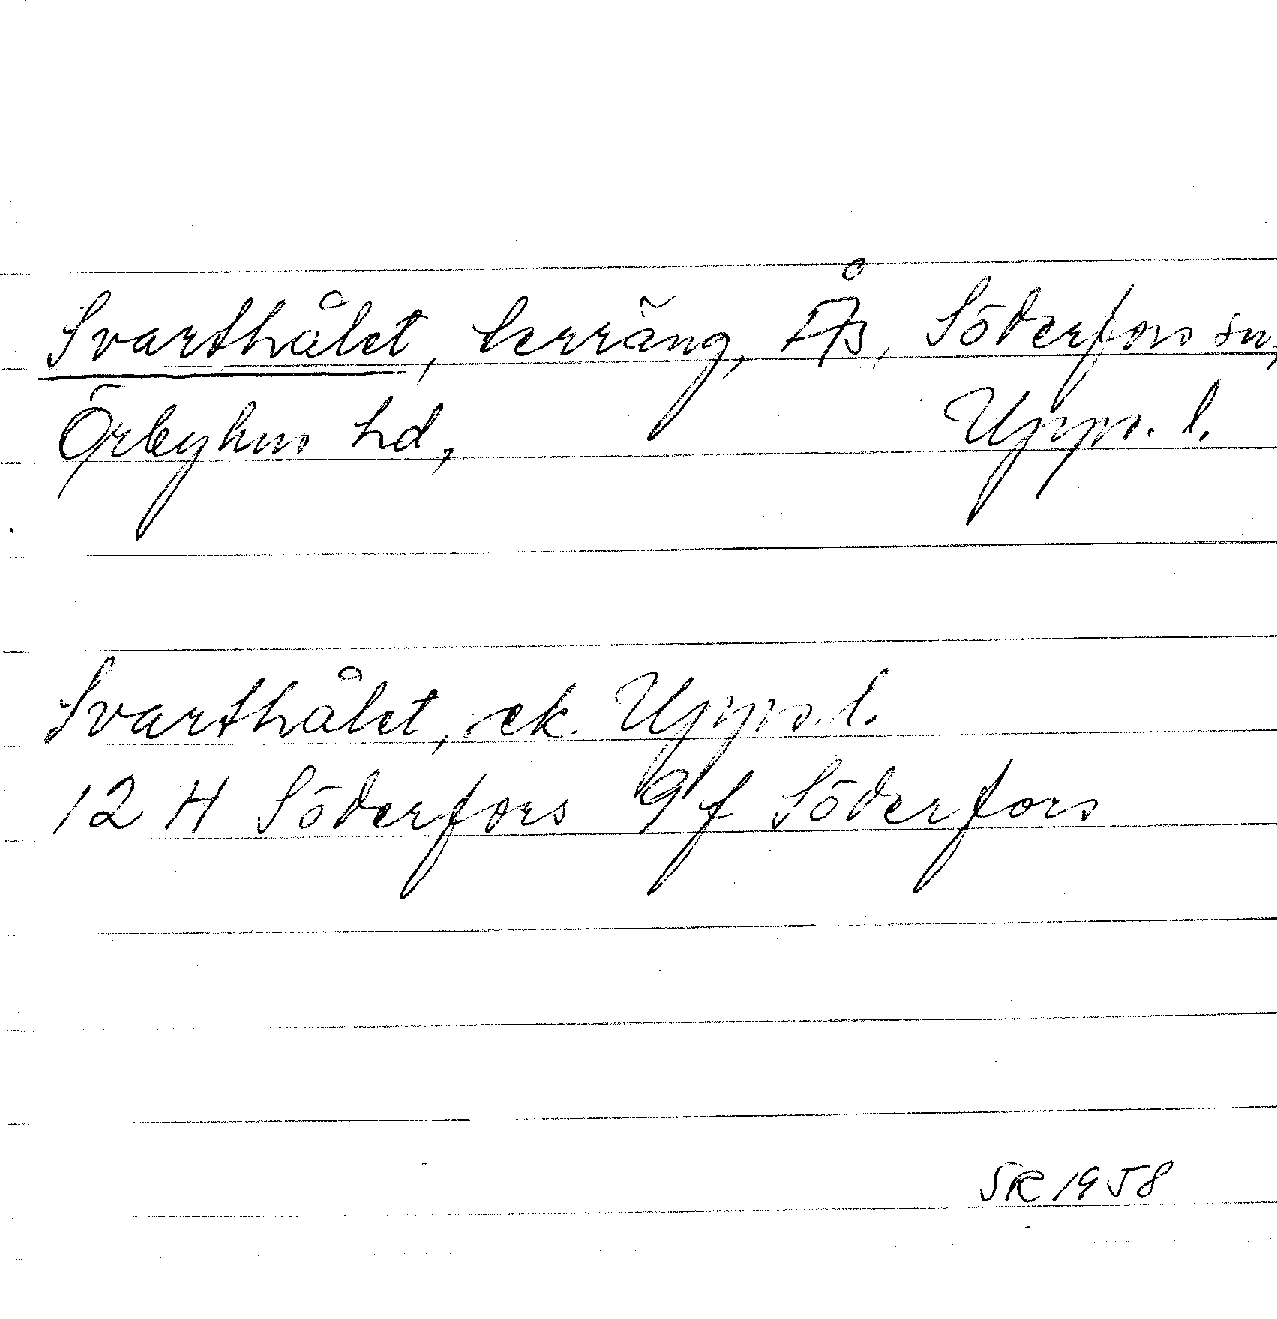 Svarthålet, terräng, Ås, Söderfors sn,
Örbyhus hd, Upps. l.
Svarthålet, ek. Upps. l.
12 H Söderfors 9 f Söderfors
SR 1958